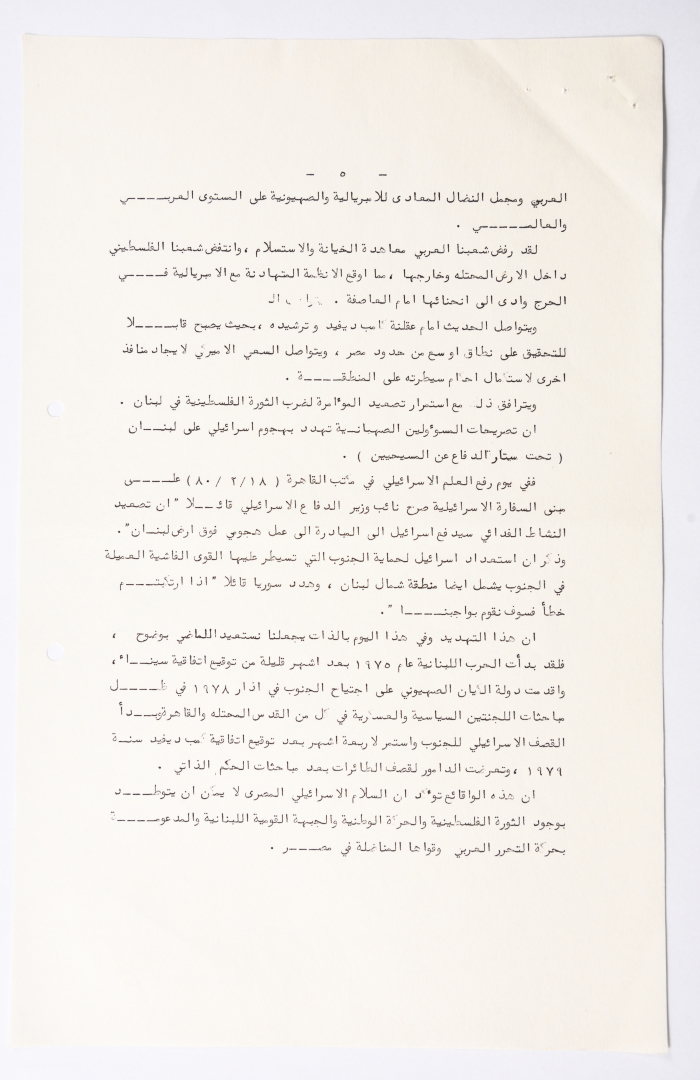 - ٥ -
العربي ومجمل النضال المعادى للامبريالية والصهيونية على المستوى العربـــي
والعالمـــي .
لقد رفض شعبنا العربي معاهدة الخيانة والاستسلام ، وانتفض شعبنا الفلسطيني
داخل الارض المحتله وخارجها ، مما اوقع الانظمة المتهادنة مع الامبريالية فـــي
الحرج وادى الى انحنائها امام العاصفة .
ويتواصل الحديث امام عقلنة كامب ديفيد وترشيده ، بحيث يصبح قابـــلا
للتحقيق على نطاق اوسع من حدود مصر ، ويتواصل السعي الاميركي لايجاد منافذ
اخرى لاستكمال احكام سيطرته على المنطقـــة .
ويترافق ذلك مع استمرار تصعيد الموٴامرة لضرب الثورة الفلسطينية في لبنان .
ان تصريحات المسوٴولين الصهاينـة تهدد بهجوم اسرائيلي على لبنـــان
( تحت ستار الدفاع عن المسيحيين ) .
ففي يوم رفع العلم الاسرائيلي في مكتب القاهرة ( ٨٠/٢/١٨ ) علـــى
مبنى السفارة الاسرائيلية صرح نائب وزير الدفاع الاسرائيلي قائـــلا " ان تصعيد
النشاط الفدائي سيدفع اسرائيل الى المبادرة الى عمل هجومي فوق ارض لبنـان".
وذكر ان استعداد اسرائيل لحماية الجنوب التي تسيطر عليها القوى الفاشية العميلة
في الجنوب يشمل ايضا منطقة شمال لبنان ، وهدد سوريا قائلا " اذا ارتكبتـــم
خطأ فسوف نقوم بواجبنـــا ".
ان هذا التهديد وفي هذا اليوم بالذات يجعلنا نستعيد الماضي بوضوح ،
فلقد بدأت الحرب اللبنانية عام ١٩٧٥ بعد اشهر قليلة من توقيع اتفاقية سينـــاء ،
واقدمت دولة الكيان الصهيوني على اجتياح الجنوب في اذار ١٩٧٨ في ظـــل
مباحثات اللجنتين السياسية والعسكرية في كل من القدس المحتله والقاهرة وبـــدأ
القصف الاسرائيلي للجنوب واستمر لاربعة اشهر بعد توقيع اتفاقية كمب ديفيد سنـــة
١٩٧٩ ، وتعرضت الدامور لقصف الطائرات بعد مباحثات الحكم الذاتي .
ان هذه الواقائع توٴكد ان السلام الاسرائيلي المصرى لا يمكن ان يتوطـــد
بوجود الثورة الفلسطينية والحركة الوطنية والجبهة القومية اللبنانية والمدعومـــة
بحركة التحرر العربي وقواها المناضلة في مصـــر .